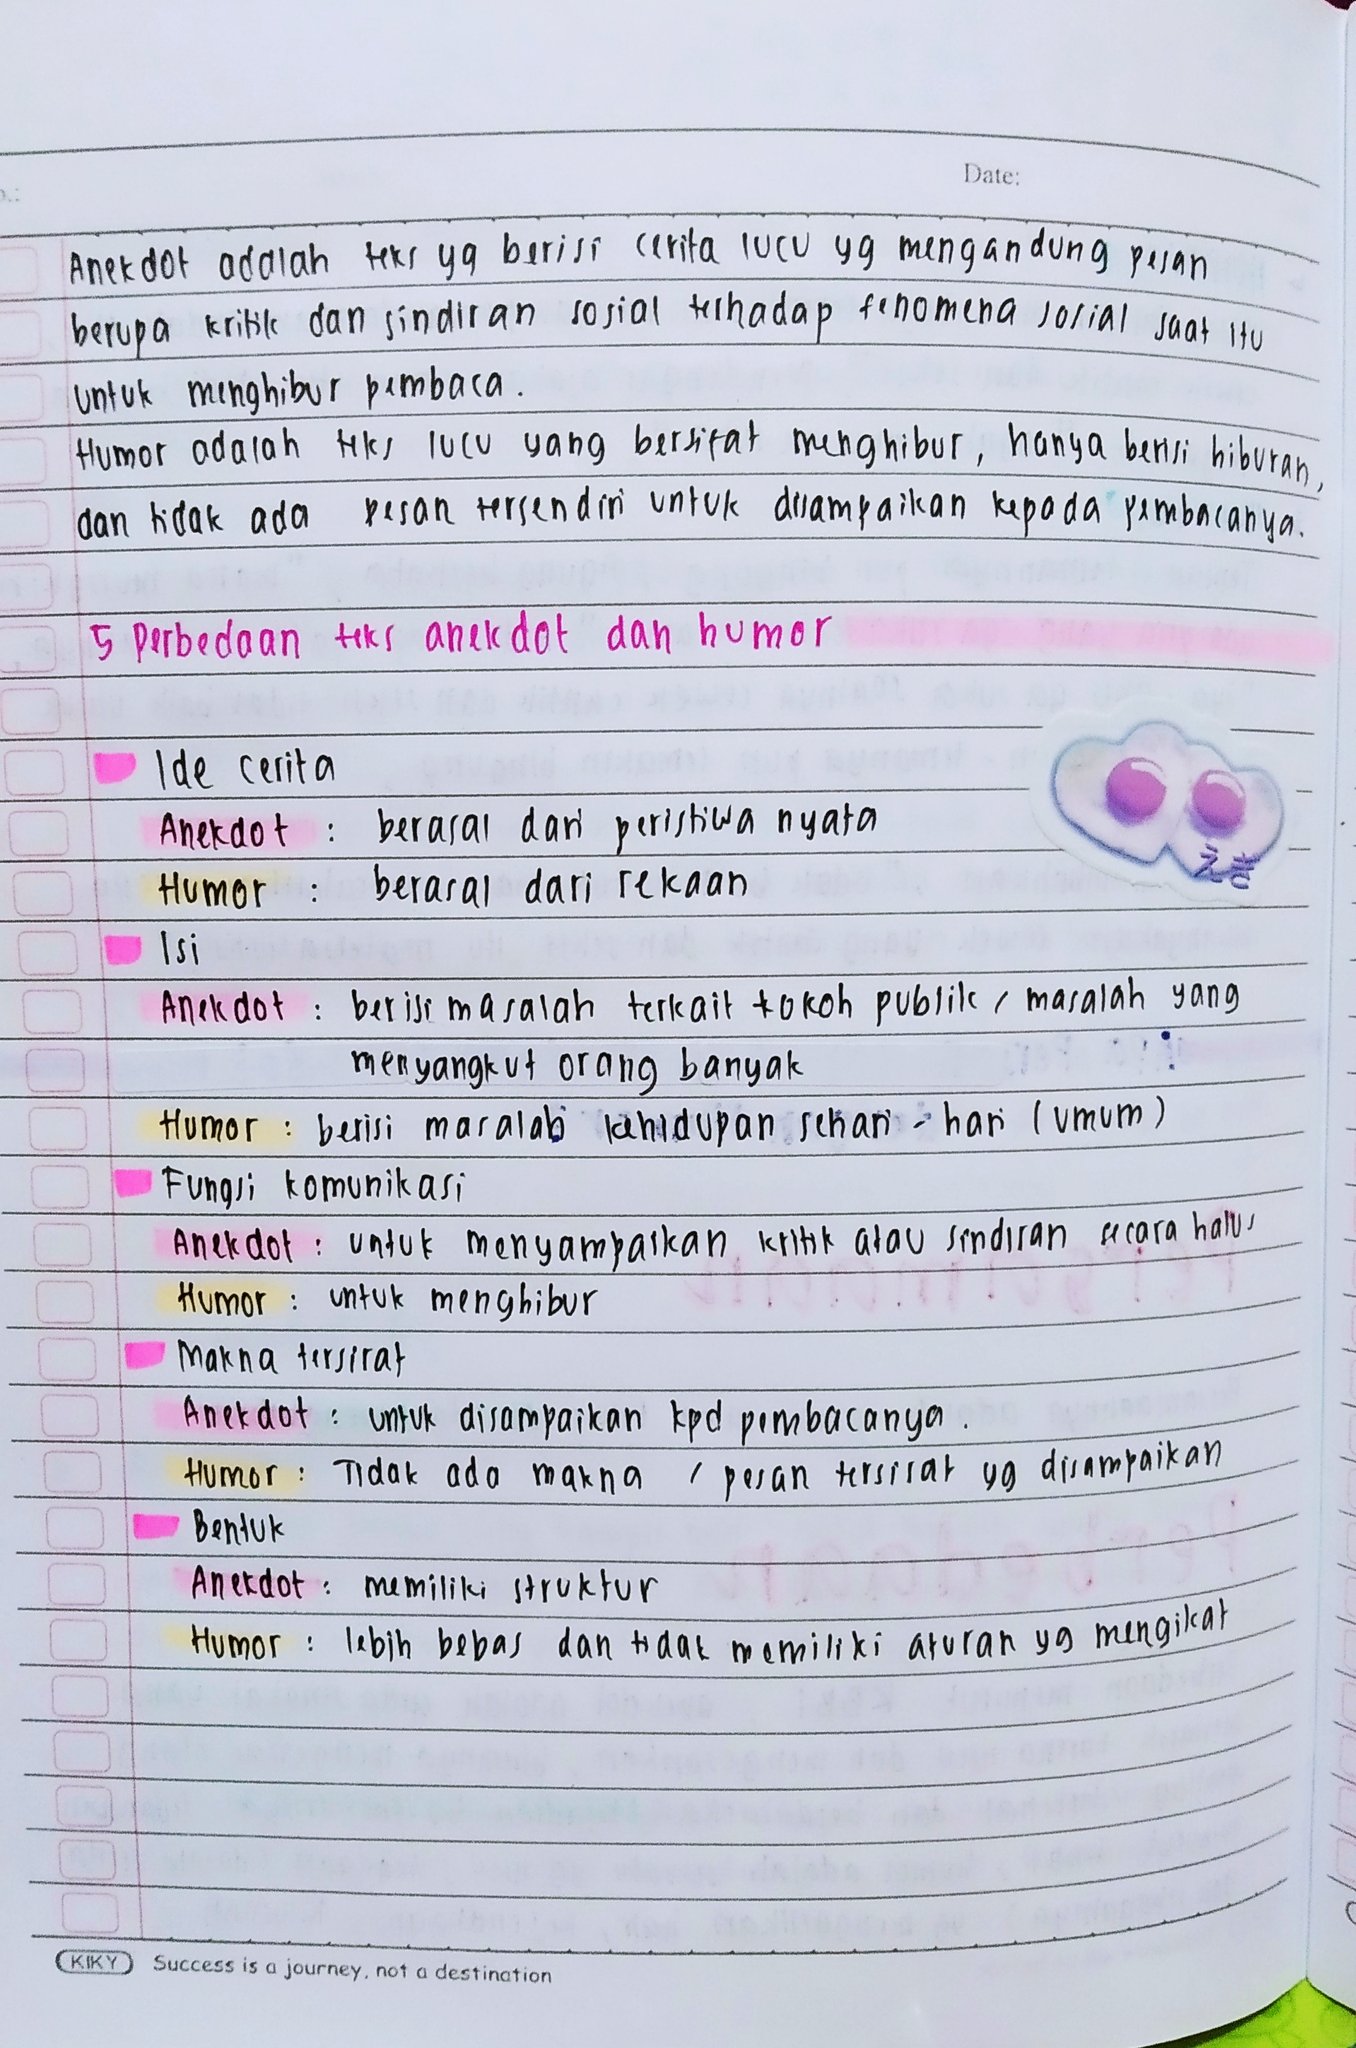 Date:
Anekdot adalah teks yg berisi cerita lucu yg mengandung pesan
berupa kritik dan sindiran sosial terhadap fenomena sosial saat itu
untuk menghibur pembaca.
Humor adalah teks lucu yang bersifat menghibur, hanya berisi hiburan,
dan tidak ada pesan tersendiri untuk disampaikan kepada pembacanya.
5 Perbedaan teks anekdot dan humor
Ide cerita
Anekdot : berasal dari peristiwa nyata
Humor : berasal dari rekaan
えき
Isi
Anekdot : berisi masalah terkait tokoh publik / masalah yang
menyangkut orang banyak
Humor : berisi masalah kehidupan sehari - hari (umum)
Fungsi komunikasi
Anekdot : untuk menyampaikan kritik atau sindiran secara halus
Humor : untuk menghibur
Makna tersirat
Anekdot : untuk disampaikan kpd pembacanya.
Humor : Tidak ada makna / pesan tersirat yg disampaikan
Bentuk
Anekdot : memiliki struktur
Humor : lebih bebas dan tidak memiliki aturan yg mengikat
KIKY Success is a journey, not a destination